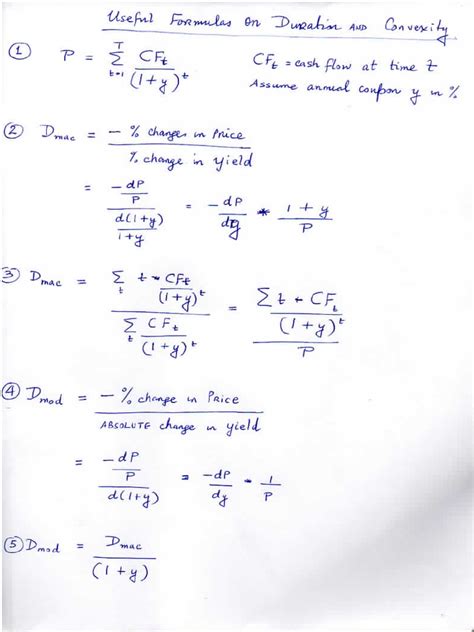 Useful Formulas on Duration and Convexity
① P = Σ_{t=1}^{T} CF_t / (1+y)^t    CF_t = cash flow at time t
Assume annual coupon y in %
② D_mac = - % changes in Price / % change in yield
= (-dP / P) / (d(1+y) / (1+y)) = -dP / dy * (1+y) / P
③ D_mac = (Σ_t t - CF_t / (1+y)^t) / (Σ_t CF_t / (1+y)^t) = (Σ t - CF_t / (1+y)^t) / P
④ D_mod = - % change in Price / ABSOLUTE change in yield
= (-dP / P) / d(1+y) = -dP / dy - 1 / P
⑤ D_mod = D_mac / (1+y)